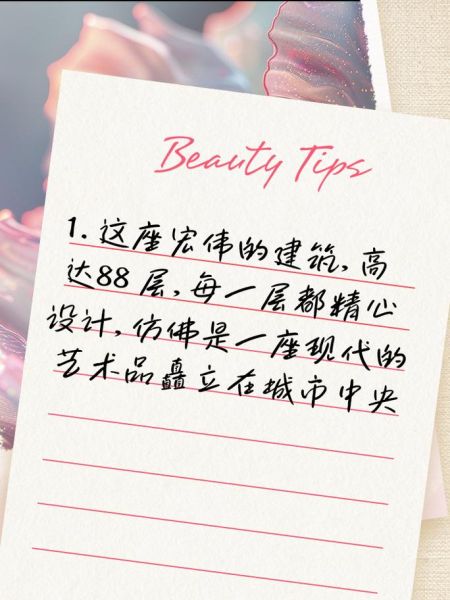 Beauty Tips
1. 这座宏伟的建筑, 高
达88层, 每一层都精心
设计, 仿佛是一座现代的
艺术品矗立在城市中央